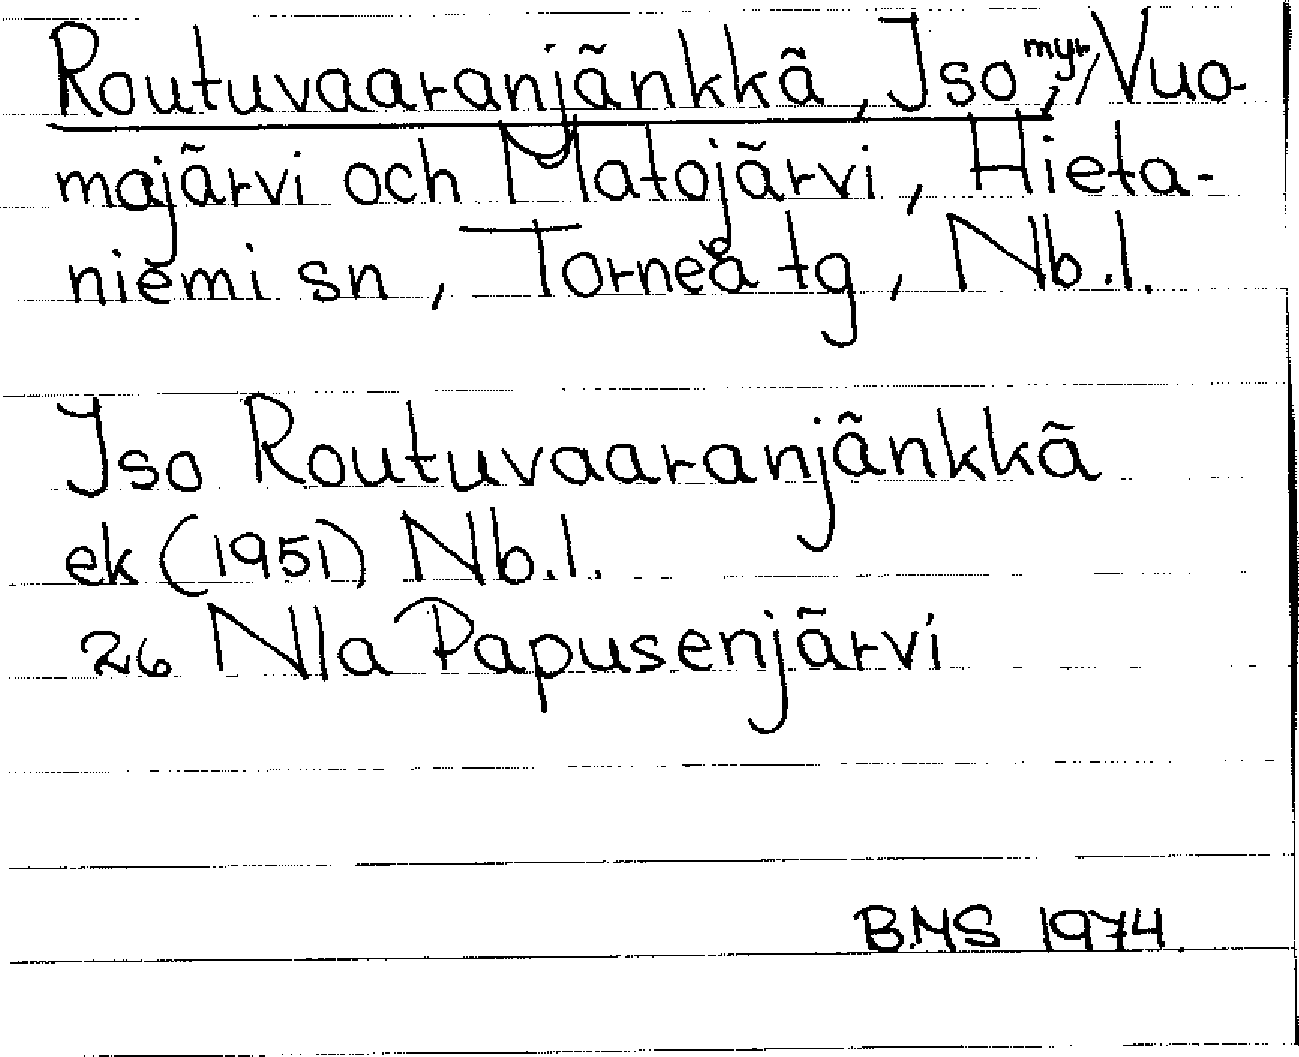 Routuvaaranjänkkä, Iso myr, Vuo-
majärvi och Matojärvi, Hieta-
niemi sn, Torneå tg, Nb.l.
Iso Routuvaaranjänkkä
ek (1951) Nb.l.
26 Nla Papusenjärvi
BMS 1974.